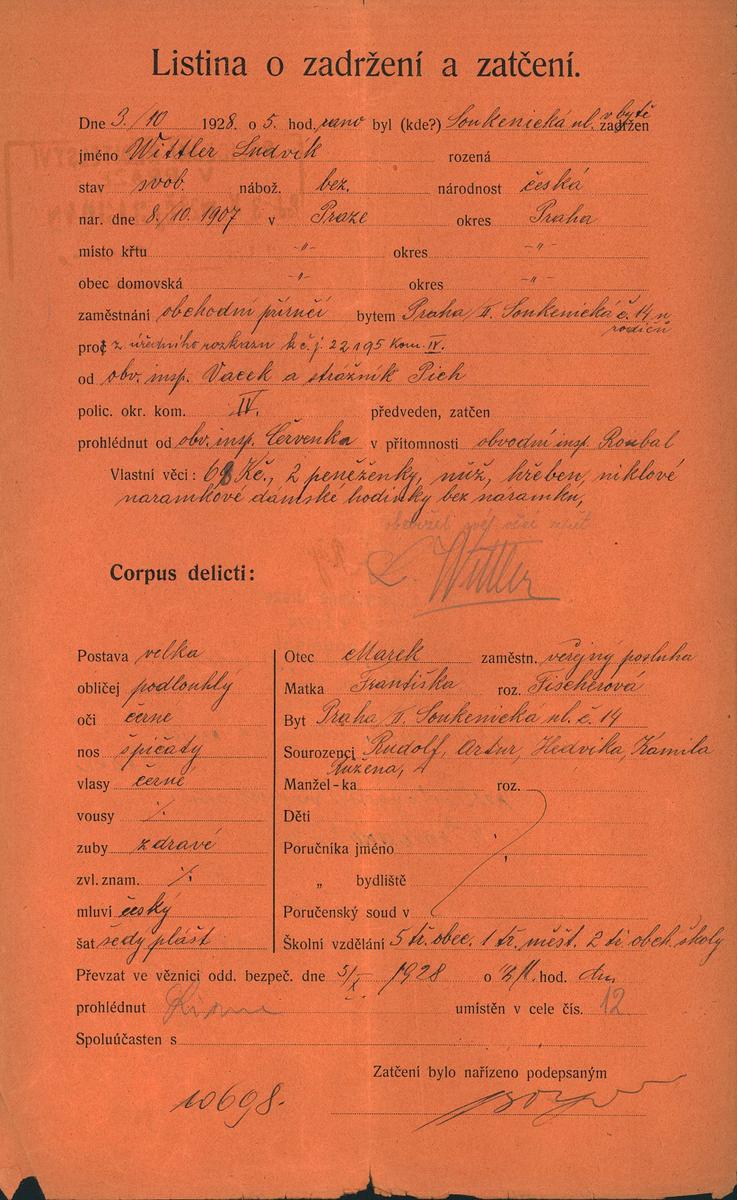 Listina o zadržení a zatčení.
Dne 3./10 1928. o 5. hod. ráno byl (kde?) Soukenická ul. v bytě zadržen
jméno Wittler Ludvik rozená
stav svob. nábož. bez. národnost česká
nar. dne 8./10. 1907 v Praze okres Praha
místo křtu -"- okres -"-
obec domovská -"- okres -"-
zaměstnání obchodní příručí bytem Praha II. Soukenická č. 14 u rodičů
proč z úředního rozkazu k č. j. 22195 kom. IV.
od obv. insp. Vacek a strážník Pich
polic. okr. kom. IV. předveden, zatčen
prohlédnut od obv. insp. Červenka v přítomnosti obvodní insp. Roubal
Vlastní věci: 68 Kč., 2 peněženky, nůž, hřeben, niklové
naramkové damské hodinky bez naramku,
obdržel své věci zpět
Corpus delicti: L. Wittler
Postava velka
obličej podlouhlý
oči černé
nos špičatý
vlasy černé
vousy ./.
zuby zdravé
zvl. znam. ./.
mluví český
šat šedý plášt
Otec Marek zaměstn. veřejný posluha
Matka Františka roz. Fischerová
Byt Praha II. Soukenická ul. č. 14
Sourozenci Rudolf, Artur, Hedvika, Kamila
Ružena,
Manžel-ka roz.
Děti
Poručníka jméno
„ bydliště
Poručenský soud v
Školní vzdělání 5 tř. obec. 1 tř. měšt. 2 tř. obch. školy
Převzat ve věznici odd. bezpeč. dne 5/X 1928 o hod. dn.
prohlédnut umístěn v cele čís. 12
Spoluúčasten s
Zatčení bylo nařízeno podepsaným
10698.